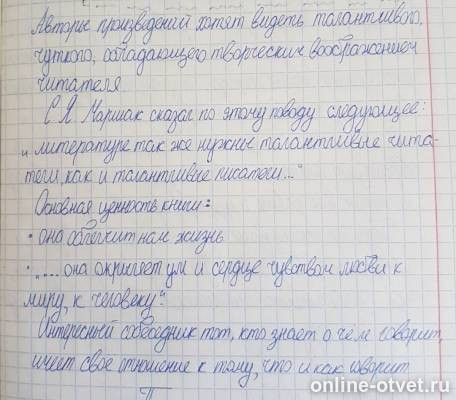 Авторы произведений хотят видеть талантливого,
чуткого, обладающего творческим воображением
читателя
С. Я. Маршак сказал по этому поводу следующее:
"литературе так же нужны талантливые чита-
тели, как и талантливые писатели..."
Основная ценность книги:
• она облегчит нам жизнь
• "....она окрыляет ум и сердце чувством любви к
миру, к человеку".
Интересный собеседник тот, кто знает о чем говорит,
имеет свое отношение к тому, что и как говорит
online-otvet.ru